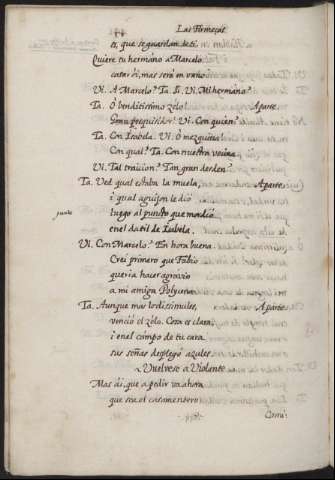 Las Firmezas
ti, que se guardan de ti.
Quiere tu hermano a Marcelo
catar oi, mas sera en vano
Vi. A Marcelo? Ta. Si. Vi. Mi hermano?
Ta. O benditissimo zelo! Aparte.
Gran prequisidor. Vi. Con quien?
Ta. Con Isabela. Vi. O mezquina!
Con qual? Ta. Con nuestra vecina.
Vi. Tal traicion? Tan gran desden?
Ta. Ved qual estaba la muela, Aparte.
i qual aguijon le dio
luego al puncto que mordio
punto
en el datil de Isabela.
Vi. Con Marcelo? En hora buena.
Crei primero que Fabio
queria hacer agravio
a mi amiga
Ta. Aunque mas lo disimules, Aparte.
vencio el zelo. Cosa es clara,
i en el campo de tu cara
sus señas desplegó azules.
Vuelvese a Violante
Mas di, que a pedir va ahora
que sea el casamentero